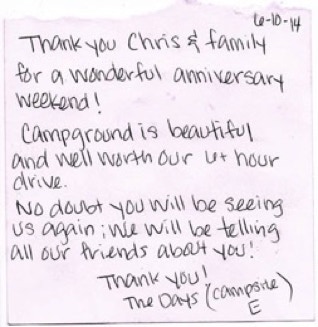 6-10-14
Thank you Chris & family
for a wonderful anniversary
weekend!
Campground is beautiful
and well worth our 4+ hour
drive.
No doubt you will be seeing
us again; we will be telling
all our friends about you!
Thank you!
The Days (campsite
E)